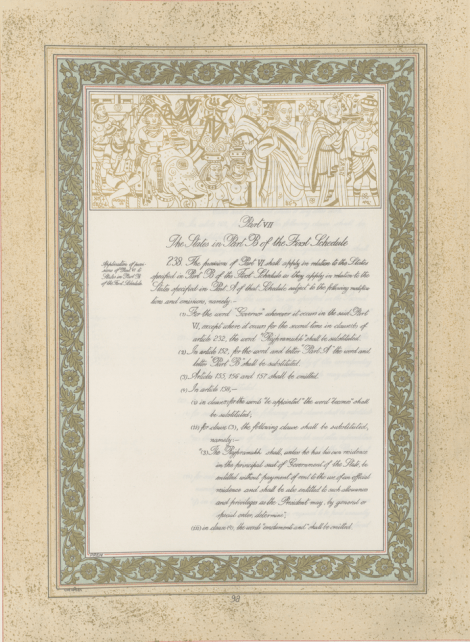 Part VII
The States in Part B of the First Schedule
Application of provi-
sions of Part VI to
States in Part B
of the First Schedule.
238. The provisions of Part VI shall apply in relation to the States
specified in Part B of the First Schedule as they apply in relation to the
States specified in Part A of that Schedule subject to the following modifica-
tions and omissions, namely:—
(1) For the word "Governor" wherever it occurs in the said Part
VI, except where it occurs for the second time in clause (b) of
article 232, the word "Rajpramukh" shall be substituted.
(2) In article 152, for the word and letter "Part A" the word and
letter "Part B" shall be substituted.
(3) Articles 155, 156 and 157 shall be omitted.
(4) In article 158,—
(i) in clause (1), for the words "be appointed" the word "become" shall
be substituted;
(ii) for clause (3), the following clause shall be substituted,
namely:—
"(3) The Rajpramukh shall, unless he has his own residence
in the principal seat of Government of the State, be
entitled without payment of rent to the use of an official
residence and shall be also entitled to such allowances
and privileges as the President may, by general or
special order, determine";
(iii) in clause (4), the words "emoluments and" shall be omitted.
98